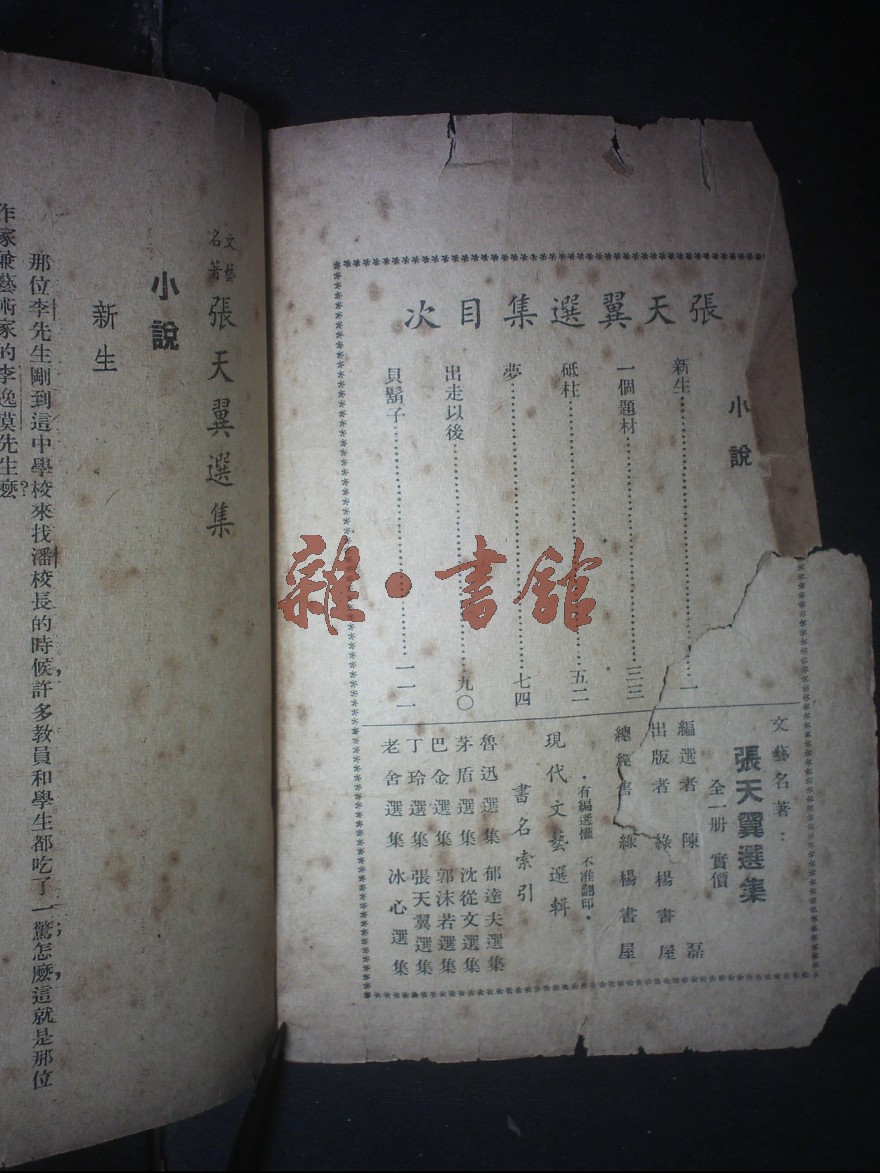 張天翼選集目次
小說
新生……一
一個題材……三三
砥柱……五二
夢……七四
出走以後……九〇
貝鬍子……一一一
文藝名著：
張天翼選集
全一册 實價
編選者 陳磊
出版者 綠楊書屋
總經售 綠楊書屋
·有編選權 不准翻印·
現代文藝選輯
書名索引
魯迅選集 郁達夫選集
茅盾選集 沈從文選集
巴金選集 郭沫若選集
丁玲選集 張天翼選集
老舍選集 冰心選集
文藝名著 張天翼選集
小說
新生
那位李先生剛到這中學校來找潘校長的時候，許多教員和學生都吃了一驚；怎麼，這就是那位
作家兼藝術家的李逸漠先生麼？
雜·書館